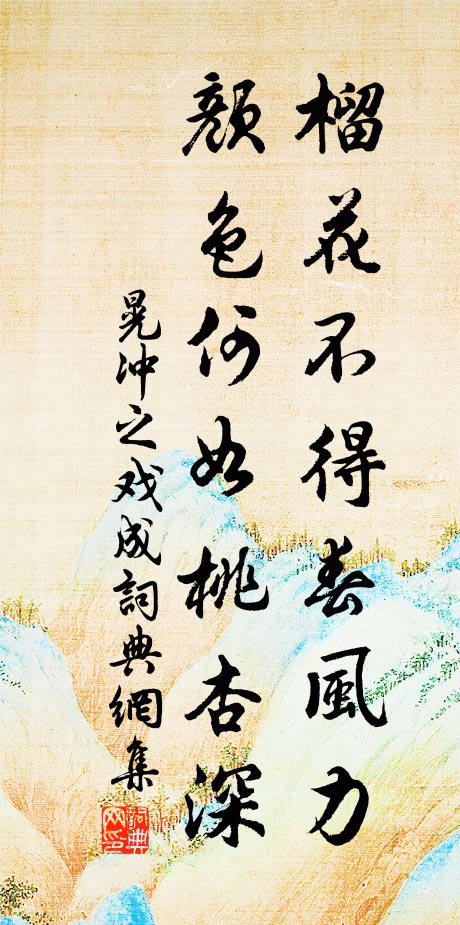 榴花不得春風力
顏色何如桃杏深
晁冲之戏成詞典網集
詞典網印